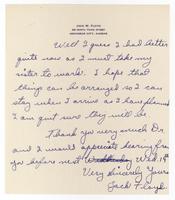 JACK W. FLOYD
ARKANSAS CITY, KANSAS
Well I guess I had better
quite now as I must take my
sister to work. I hope that
things can be arranged so I can
stay when I arrive as I have planned
I am quit sure they will be.
Thank you very much Dr.
and I would appreciate hearing from
you before next Wed.
Very Sincerely Yours
Jack Floyd